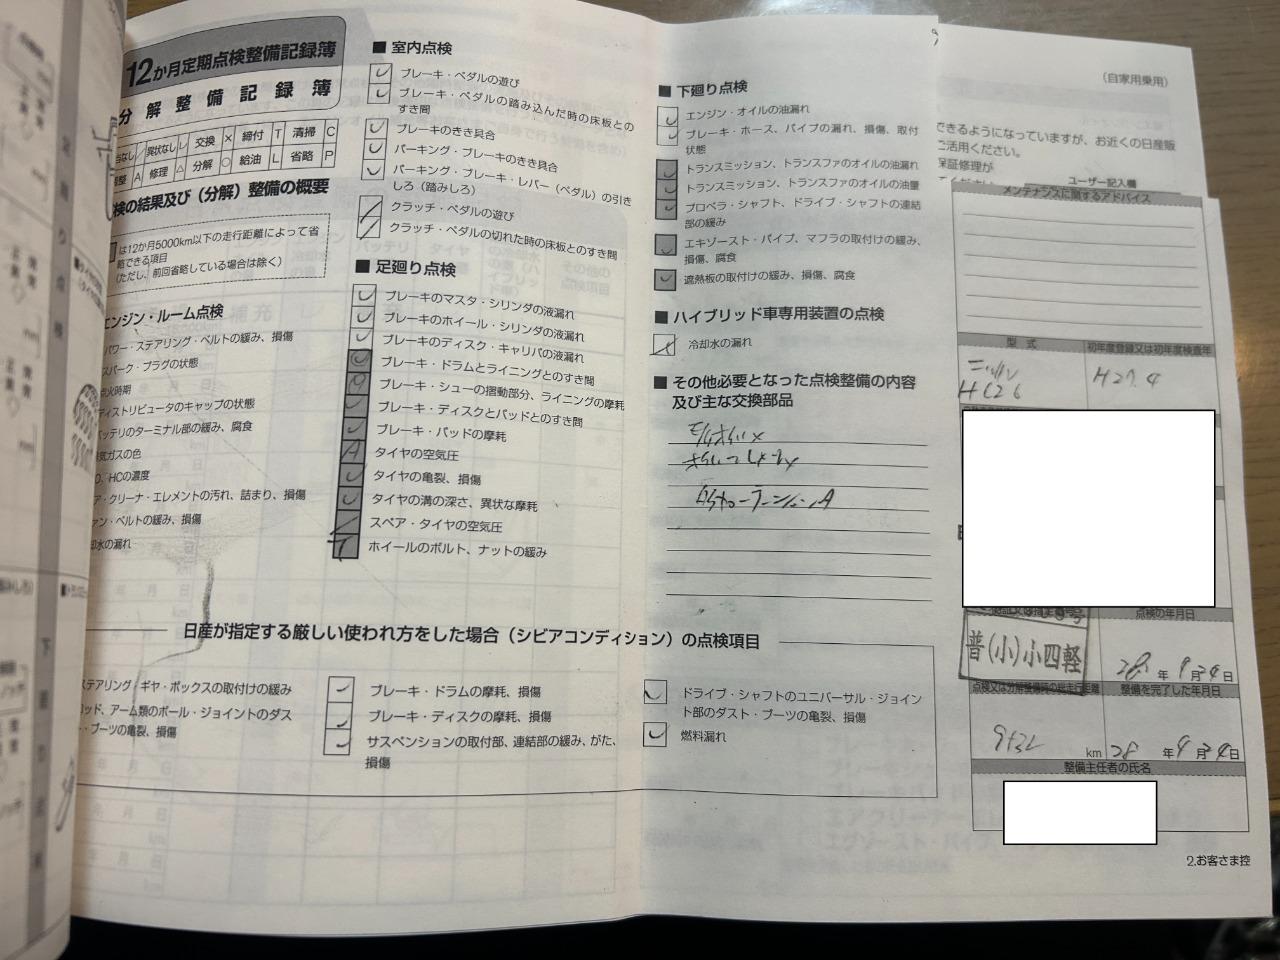 12か月定期点検整備記録簿
分解整備記録簿
異状なし レ 交換 × 締付 T 清掃 C
修理 △ 分解 ○ 給油 L 省略 P
検の結果及び（分解）整備の概要
は12か月5000km以下の走行距離によって省
略できる項目
（ただし、前回省略している場合は除く）
エンジン・ルーム点検
パワー・ステアリング・ベルトの緩み、損傷
スパーク・プラグの状態
点火時期
ディストリビュータのキャップの状態
バッテリのターミナル部の緩み、腐食
気ガスの色
O、HCの濃度
ア・クリーナ・エレメントの汚れ、詰まり、損傷
ァン・ベルトの緩み、損傷
却水の漏れ
■ 室内点検
ブレーキ・ペダルの遊び
ブレーキ・ペダルの踏み込んだ時の床板との
すき間
ブレーキのきき具合
パーキング・ブレーキのきき具合
パーキング・ブレーキ・レバー（ペダル）の引き
しろ（踏みしろ）
クラッチ・ペダルの遊び
クラッチ・ペダルの切れた時の床板とのすき間
■ 足廻り点検
ブレーキのマスタ・シリンダの液漏れ
ブレーキのホイール・シリンダの液漏れ
ブレーキのディスク・キャリパの液漏れ
ブレーキ・ドラムとライニングとのすき間
ブレーキ・シューの摺動部分、ライニングの摩耗
ブレーキ・ディスクとパッドとのすき間
ブレーキ・パッドの摩耗
A タイヤの空気圧
タイヤの亀裂、損傷
タイヤの溝の深さ、異状な摩耗
スペア・タイヤの空気圧
T ホイールのボルト、ナットの緩み
■ 下廻り点検
エンジン・オイルの油漏れ
ブレーキ・ホース、パイプの漏れ、損傷、取付
状態
トランスミッション、トランスファのオイルの油漏れ
トランスミッション、トランスファのオイルの油量
プロペラ・シャフト、ドライブ・シャフトの連結
部の緩み
エキゾースト・パイプ、マフラの取付けの緩み、
損傷、腐食
遮熱板の取付けの緩み、損傷、腐食
■ ハイブリッド車専用装置の点検
冷却水の漏れ
■ その他必要となった点検整備の内容
及び主な交換部品
日産が指定する厳しい使われ方をした場合（シビアコンディション）の点検項目
ステアリング・ギヤ・ボックスの取付けの緩み
ロッド、アーム類のボール・ジョイントのダス
ト・ブーツの亀裂、損傷
ブレーキ・ドラムの摩耗、損傷
ブレーキ・ディスクの摩耗、損傷
サスペンションの取付部、連結部の緩み、がた、
損傷
ドライブ・シャフトのユニバーサル・ジョイン
ト部のダスト・ブーツの亀裂、損傷
燃料漏れ
（自家用乗用）
できるようになっていますが、お近くの日産販
ご活用ください。
保証修理が
ユーザー記入欄
メンテナンスに関するアドバイス
型式
初年度登録又は初年度検査年
HC26
H27.4
普(小)小四軽
点検の年月日
28年9月24日
点検又は分解整備時の総走行距離
整備を完了した年月日
km 28年9月24日
整備主任者の氏名
2.お客さま控